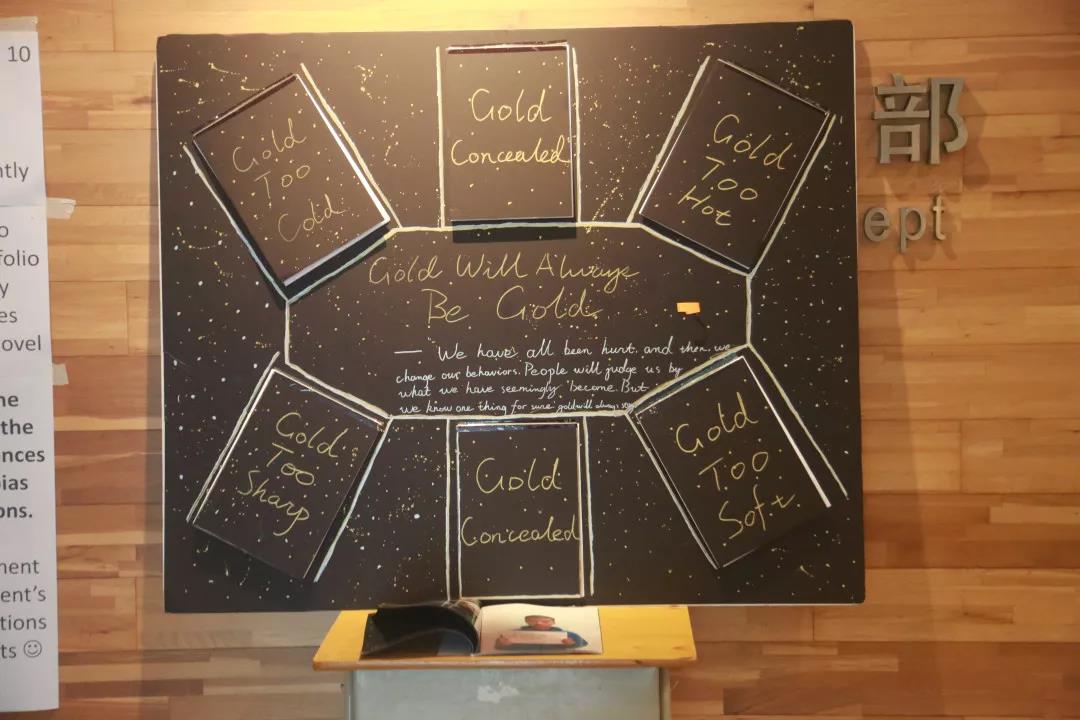 10
ntly
o
folio
y
es
ovel
ne
the
ences
bias
ons.
ment
ent's
tions
ts ☺
Gold
Too
Cold
Gold
Concealed
Gold
Too
Hot
部
ept
Gold Will Always
Be Gold
— We have all been hurt. and then, we
change our behaviors. People will judge us by
what we have seemingly become. But
we know one thing for sure: gold will always
Gold
Too
Sharp
Gold
Concealed
Gold
Too
Soft